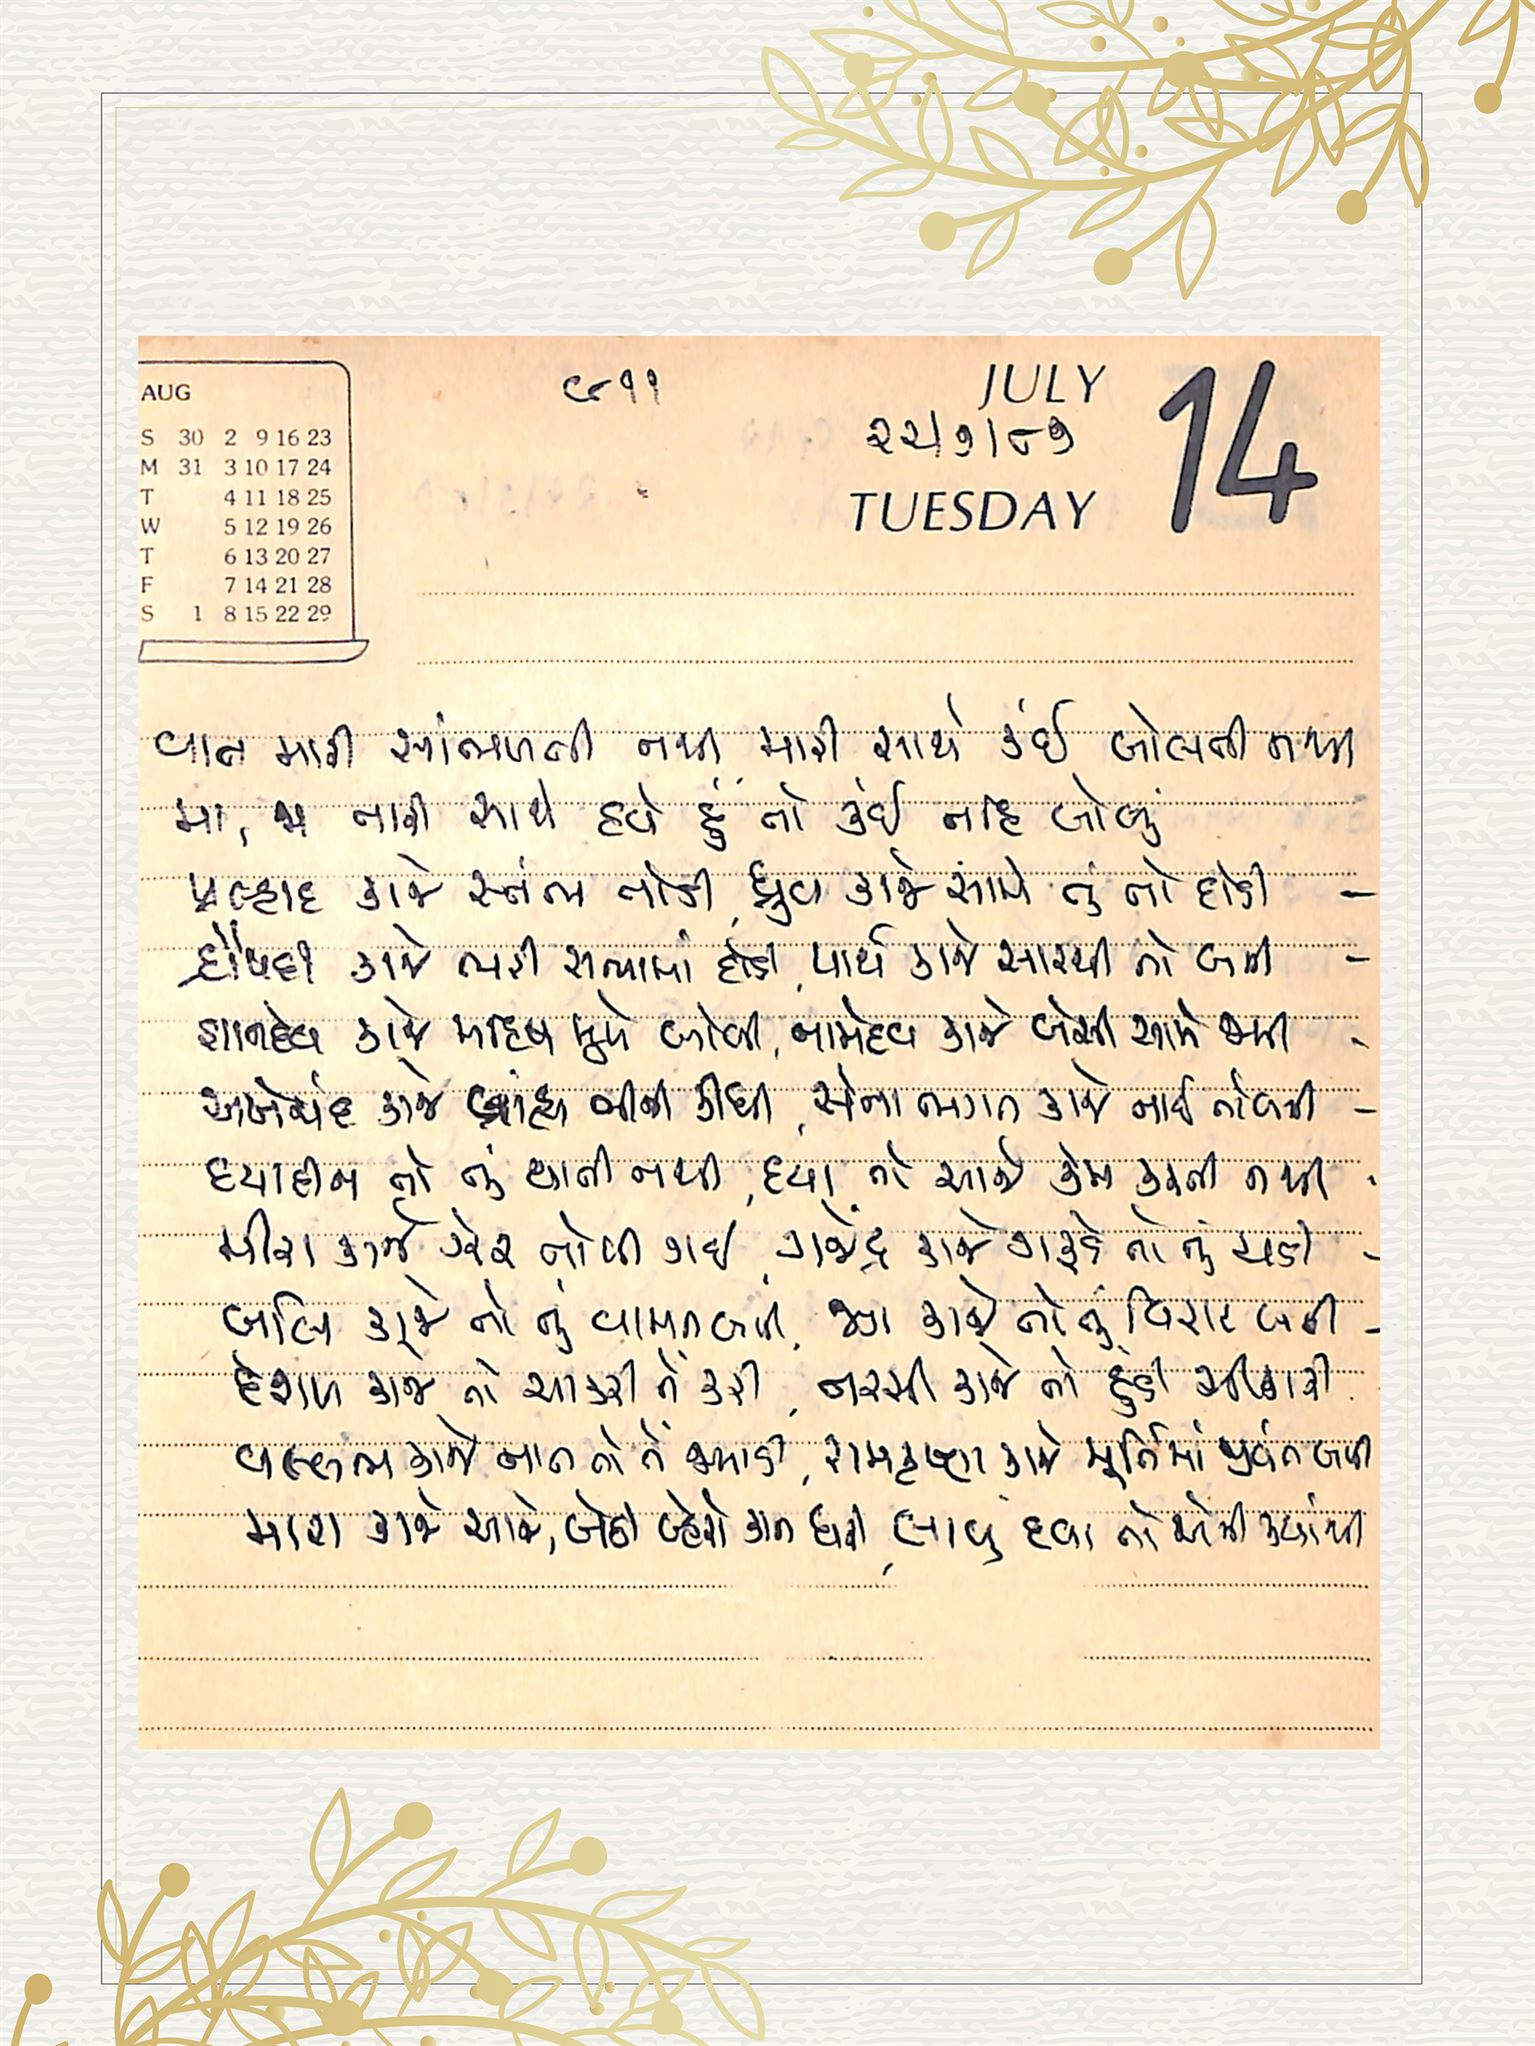 AUG
S 30 2 9 16 23
M 31 3 10 17 24
T 4 11 18 25
W 5 12 19 26
T 6 13 20 27
F 7 14 21 28
S 1 8 15 22 29
૯૧૧
JULY 14
૨૨/૭/૮૭
TUESDAY
વાત મારી સાંભળતી નથી મારી સાથે કંઈ બોલતી નથી
મા, જા તારી સાથે હવે હું તો કંઈ નહિ બોલું
પ્રહ્લાદ કાજે સ્તંભ તોડી, ધ્રુવ કાજે સામે તું તો દોડી -
દ્રૌપદી કાજે ભરી સભામાં દોડી, પાર્થ કાજે સારથી તો બની -
જ્ઞાનદેવ કાજે મહિષ મુખે બોલી, નામદેવ કાજે બેસી સામે જમી -
કાજે કીધી, સેના ભગત કાજે નાઈ તો બની -
દયાહીન તો તું થાતી નથી, દયા તો આજે કેમ કરતી નથી -
મીરા કાજે ઝેર તો પી ગઈ, ગજેંદ્ર કાજે ગરૂડે તો તું ચડી -
બલિ કાજે તો તું વામન બની, કાજે તો તું વિરાટ બની -
કાજે તો ચાકરી તેં કરી, નરસી કાજે તો હૂંડી સ્વીકારી
વલ્લભ કાજે ભાત તો તેં જમાડી, રામકૃષ્ણ કાજે મૂર્તિમાં જીવંત બની
મારા કાજે આજે, બેઠી બ્હેરો કાન ધરી, લાવું દવા તો એની ક્યાંથી